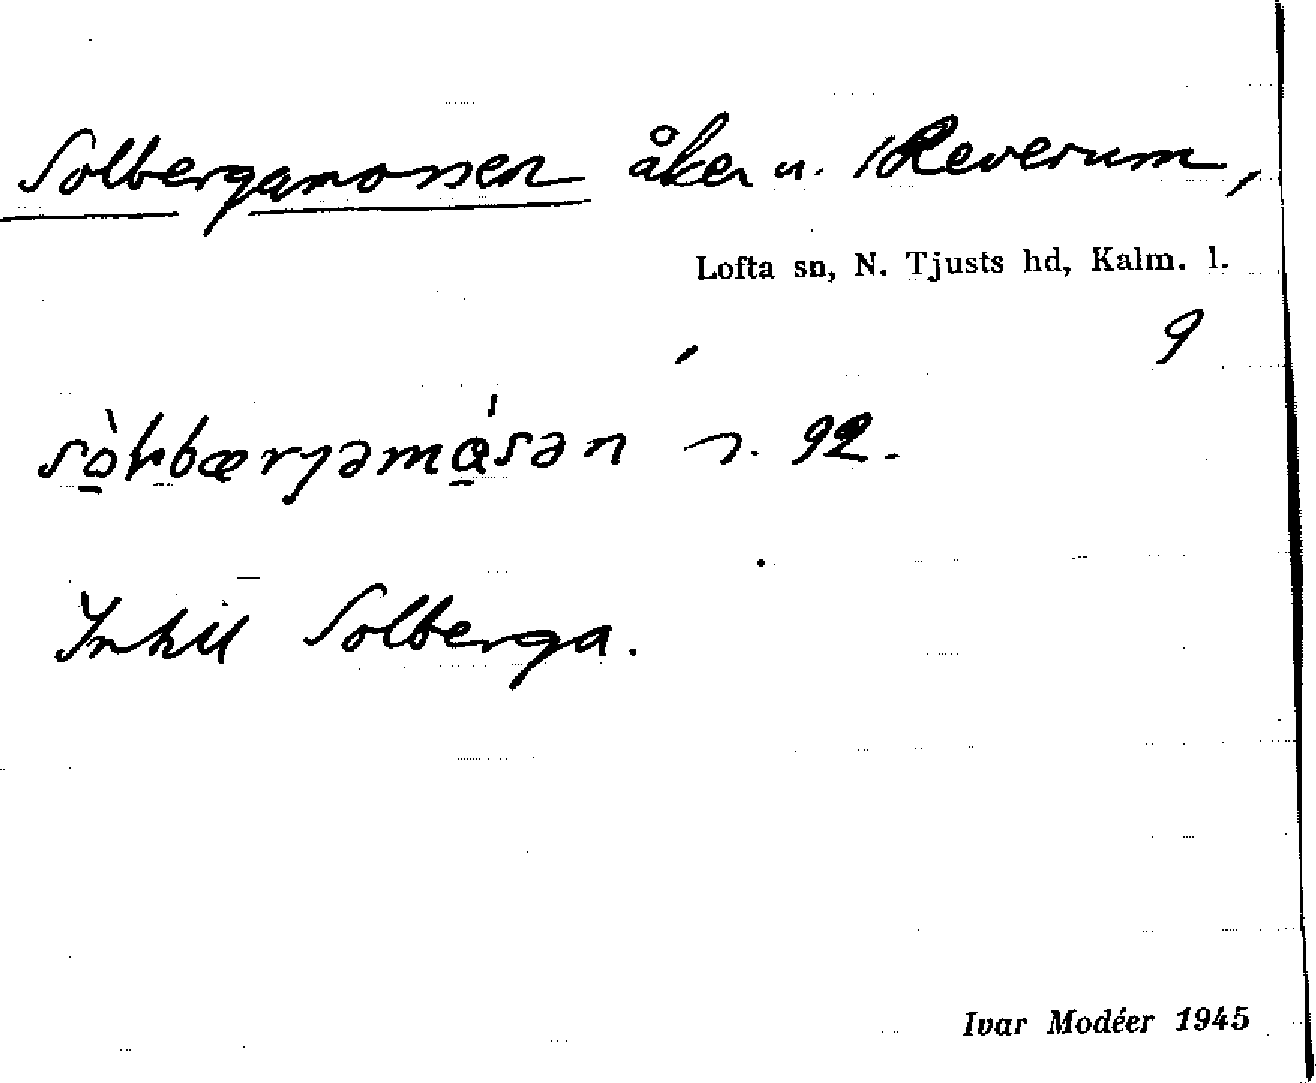 Solbergamossen åker u. Reverum,
Lofta sn, N. Tjusts hd, Kalm. l.
9
92.
Inhil Solberga.
Ivar Modéer 1945